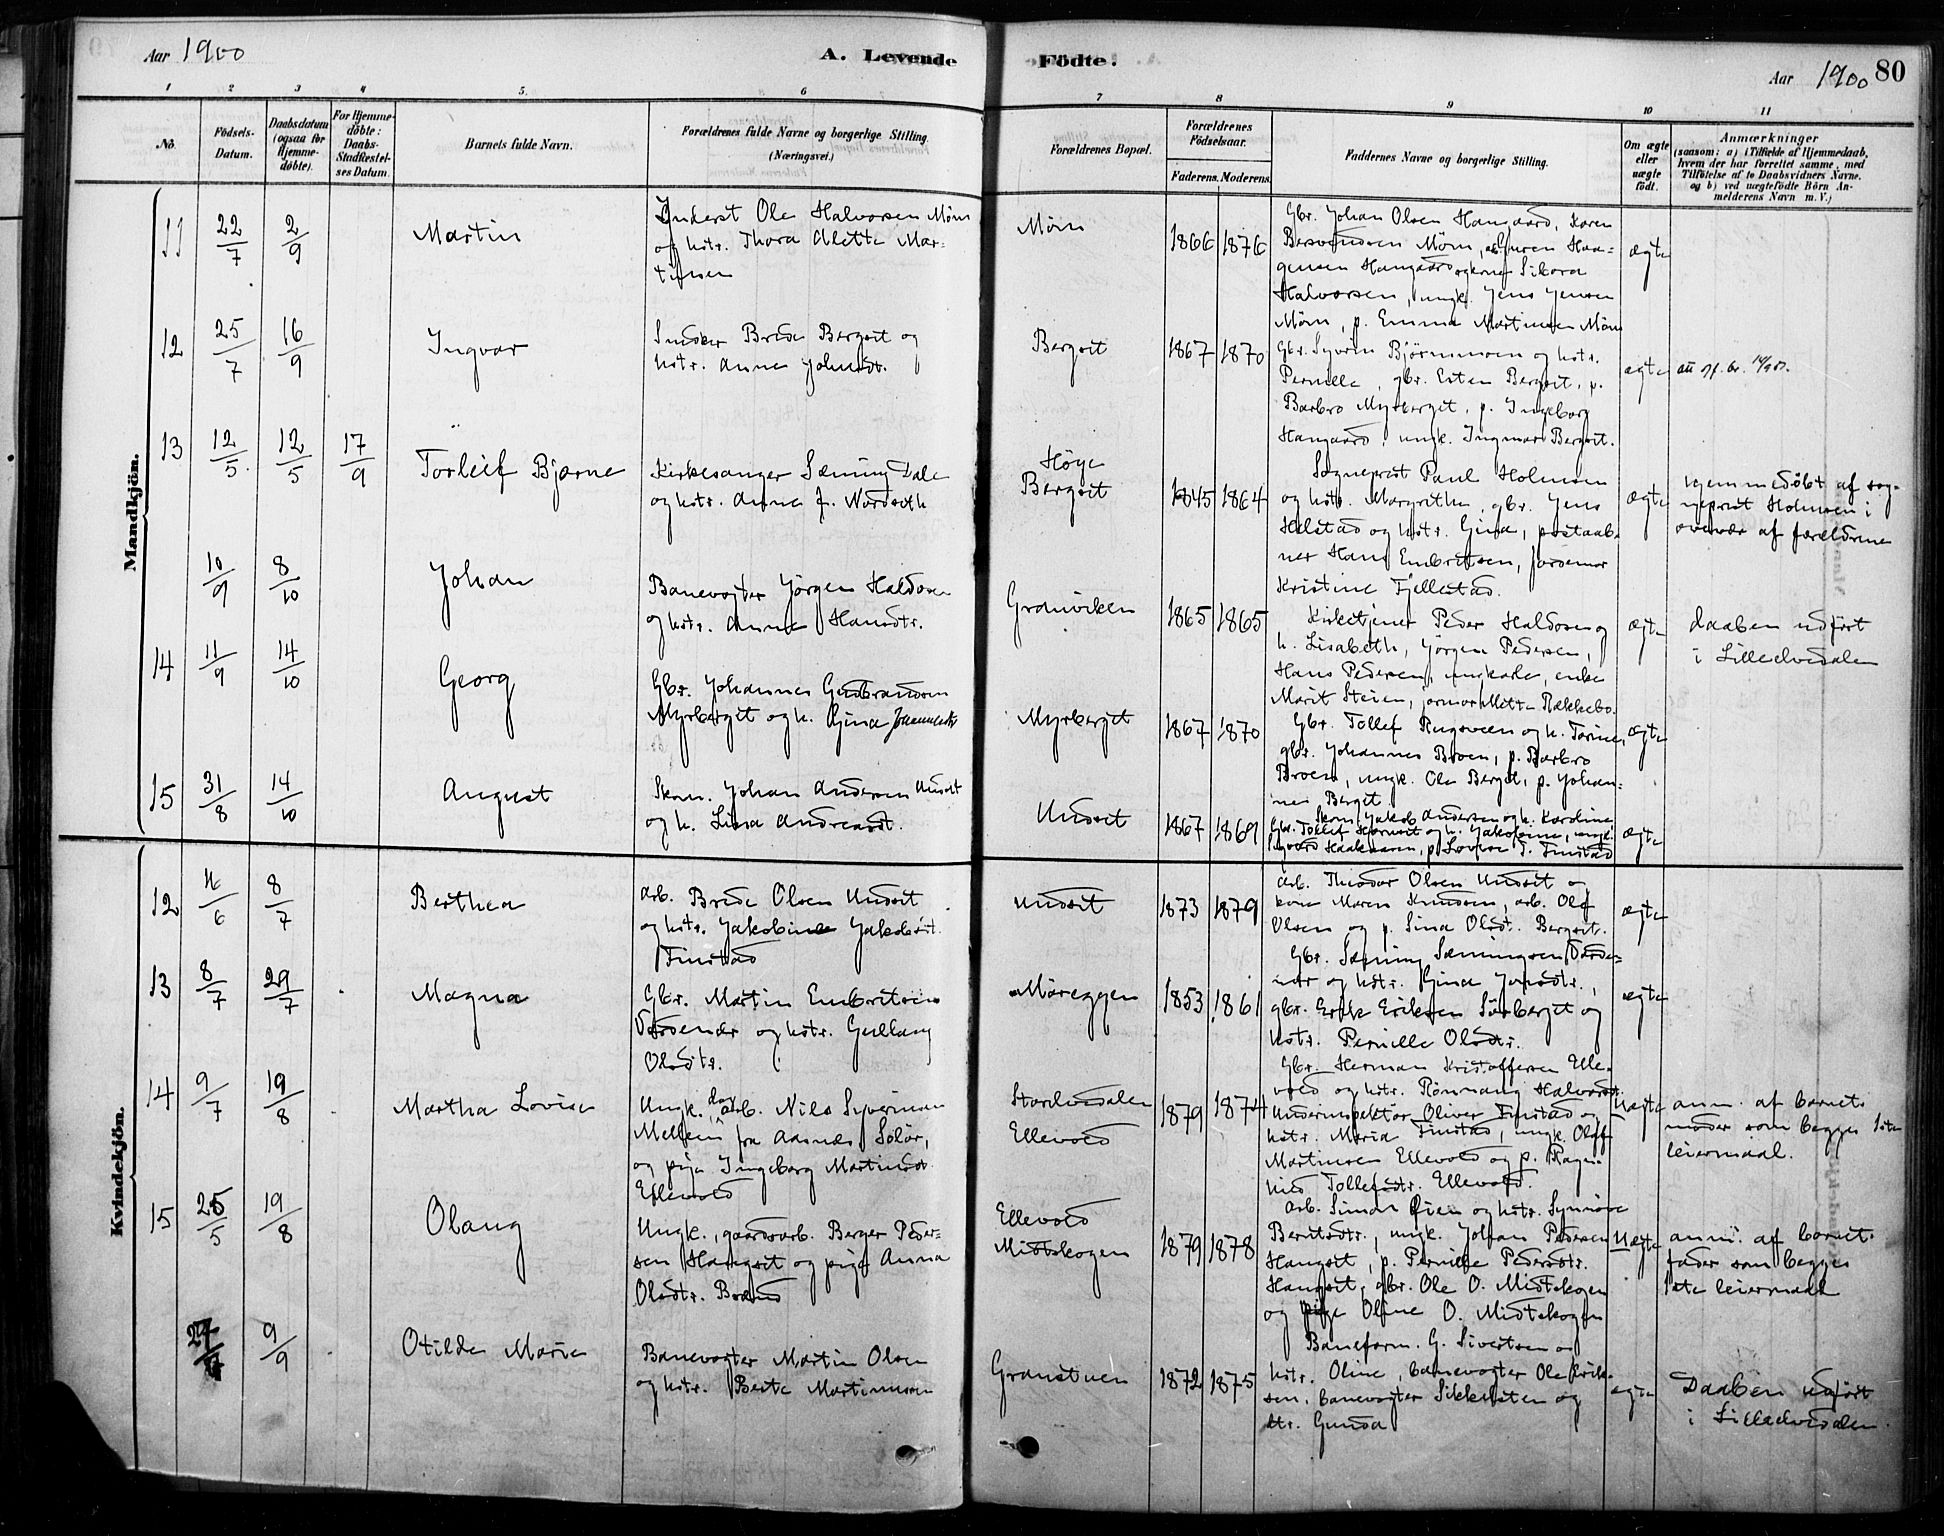 Aar 1900
A. Levende Födte.
Aar 1900
80
1 2 3 4 5. 6 7 8 9 10 11
No. Födsels-Datum. Daabsdatum (ogsaa for Hjemme-döbte). For Hjemme-döbte: Daabs-Stadfæstel-ses Datum. Barnets fulde Navn. Forældrenes fulde Navne og borgerlige Stilling. (Næringsvei.) Forældrenes Bopæl. Forældrenes Födselsaar. Faderens. Moderens. Faddernes Navne og borgerlige Stilling. Om ægte eller uægte födt. Anmærkninger (saasom: a) i Tilfælde af Hjemmedaab, hvem der har forrettet samme, med Tilföielse af to Daabsvidners Navne, og b) ved uægtefödte Börn An-melderens Navn m. V.)
Mandkjön.
11 22/7 2/9 Martin
Inderst Ole Halvorsen Möm
og hstr. Thora Alette Mar-
tinsen
Möm 1866 1876
Gbr. Johan Olsen Haugaard, Karen
Halvorsen, ungk. Jens Jensen
Möm, p. Emma Martinsen Möm
ægte
12 25/7 16/9 Ingvar
Brede Bergset og
hstr. Anne Johnsdt.
Bergset 1867 1870
Gbr. Syver Bjørnmoen og hstr.
Pernille, gbr. Esten Bergset, p.
Barbro Myrberget, p. Ingeborg
Haugaard, ungk. Ingmar Bergset.
ægte
13 12/5 12/5 17/9 Torleif Bjarne
Kirkesanger Sæming Dale
og hstr. Anne f. Nordseth
Höye
Bergset 1845 1864
Sogneprest Paul Holmsen
og hstr. Margrethe, gbr. Jens
Helstad og hstr. Gina, postaab-
ner Hans Embretsen, jordemor
Kristine Fjellestad.
ægte
Hjemmedöbt af sog-
neprest Holmsen i
overvær af forældrene
10/9 8/10 Johan
Banevogter Jörgen Haldosen
og hstr. Anne Hansdtr.
Granviken 1865 1865
Kirketjener Peder Haldosen og
h. Lisabeth, Jörgen Pedersen,
Hans Pedersen, ungkarle, enke
Marit Steien, jormor Mette Rækkebo.
ægte
daaben udfört
i Lilleelvedalen
14 11/9 14/10 Georg
Gbr. Johannes Gudbrandsen
Myrberget og h. Gina
Myrberget 1867 1870
Gbr. Tollef Rugsveen og h. Torine,
gbr. Johannes Broen, p. Barbro
Broen, ungk. Ole Berget, p. Johan-
nes Berget.
ægte
15 31/8 14/10 August
Skom. Johan Andersen Undset
og h. Lina Andreasdt.
Undset 1867 1869
Skom. Jakob Andersen og h. Karoline
Gbr. Tollef og h. Jakobine, ungk.
Haakensen, p. Lovise T. Finstad
ægte
Kvindekjön.
12 8/7 Berthea
Arb. Brede Olsen Undset
og hstr. Jakobine Jakobsdt.
Finstad
Undset 1873 1879
Arb. Theodor Olsen Undset og
kone Maren Knudsen, arb. Olof
Olsen og p. Sina Olsdt. Bergset.
ægte
13 8/7 29/7 Magna
Gbr. Martin Embretsen
og hstr. Gullaug
Olsdtr.
Möreggen 1853 1861
Gbr. Sæming Sæmingsen
og hstr. Gina
gbr. Erik Eriksen Sörberget og
hstr. Pernille Olsdtr.
ægte
14 9/7 19/8 Martha Lovise
Ungk. dagarb. Nils Syversen
Mellem fra Aasnes Solör,
og pige Ingeborg Martinsdt.
Ellevold
Storelvedalen
Ellevold
1879 1874
Gbr. Herman Kristoffersen Elle-
vold og hstr. Rönnaug Halvorsdt.
Underinspektör Oliver Finstad og
hstr. Maria Finstad, ungk. Olaf
Martinsen Ellevold og p. Ragn-
hild Tollefsdtr. Ellevold.
Uægte
anm. af barnets
moder som begges 1ste
leiermaal.
15 25/5 19/8 Olaug
Ungk., gaardsarb. Berger Peder-
sen Haugset og pige Anna
Olsdtr.
Ellevold
Midtskogen
1879 1878
Arb. Simon Öien og hstr. Synnöve
Berntsdtr., ungk. Johan Pedersen
Haugset, p. Pernille Pedersdtr.
Haugset, gbr. Ole O. Midtskogen
og pige Oline O. Midtskogen
Uægte
anm. af barnets
fader som begges
1ste leiermaal
9/9 Otilde Marie
Banevogter Martin Olsen
og hstr. Berte Martinusen
Granstuen 1872 1875
Baneform. G. Sivertsen og
hstr. Oline, banevogter Ole Erik-
sen, banevogter og
str. Gunda
ægte
Daaben udfört
i Lilleelvedalen.